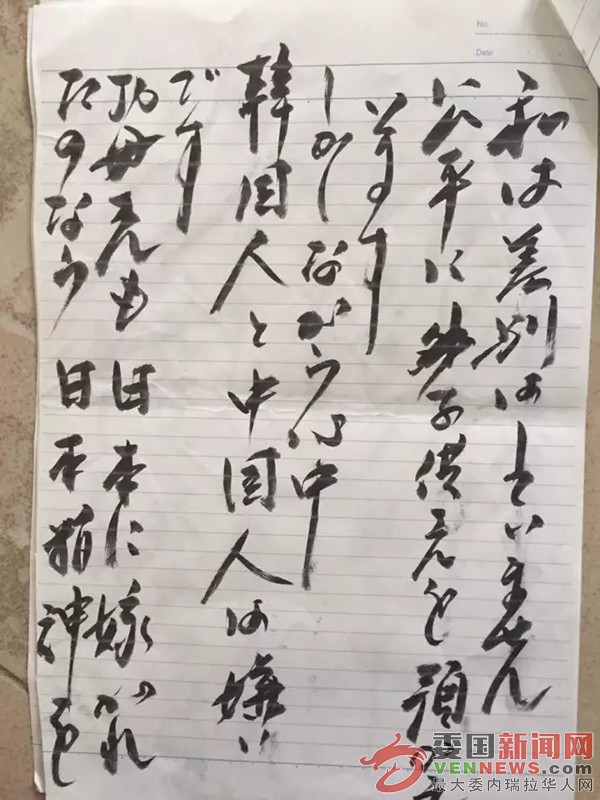 私は差別はしていません
公平にお子供さんを預
います
しかしながら心中
韓国人と中国人は嫌い
です
お母さんも日本に嫁がれ
たのなら 日本精神を
No.
Date
委国新闻网
VENNEWS.COM
最大委内瑞拉华人网